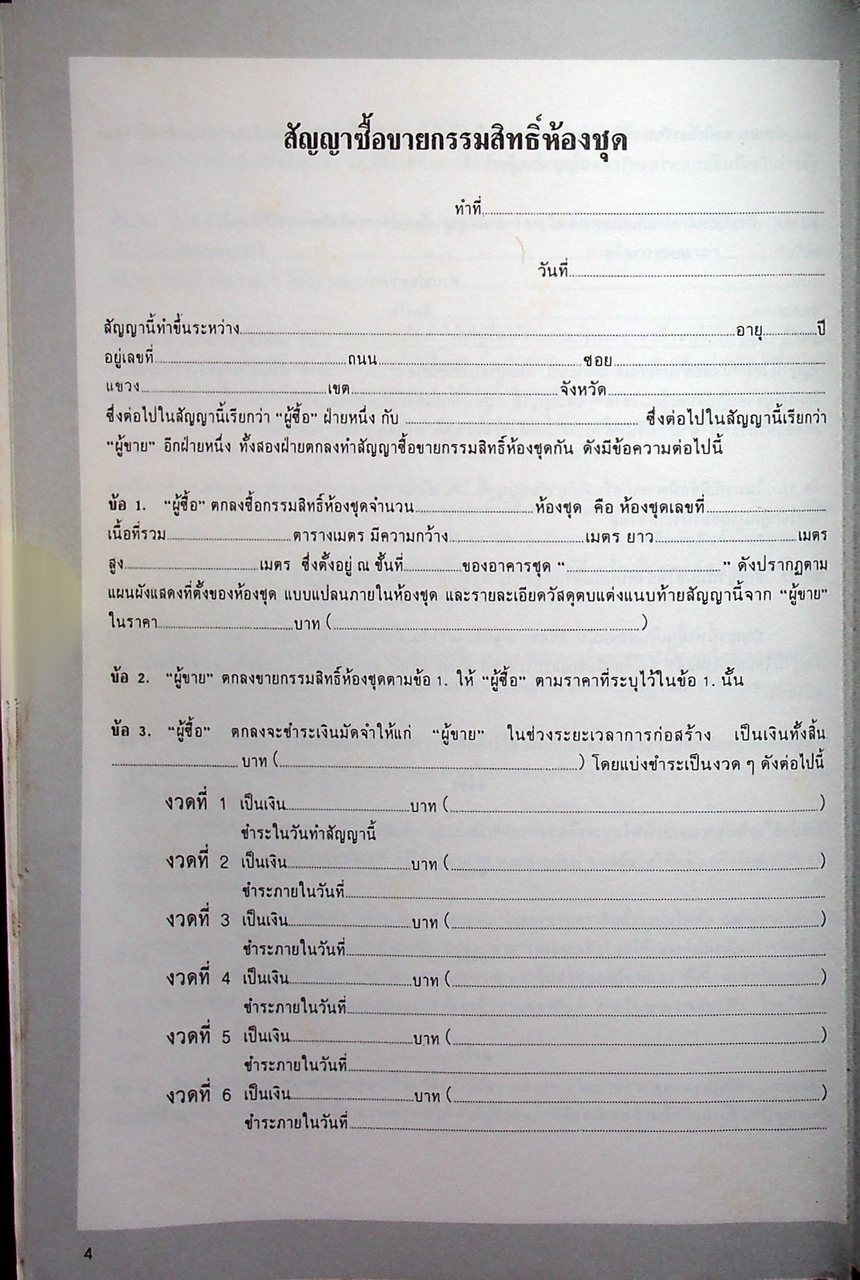 สัญญาซื้อขายกรรมสิทธิ์ห้องชุด
ทำที่..............................
วันที่..............................
สัญญานี้ทำขึ้นระหว่าง..............................อายุ..............ปี
อยู่เลขที่..............................ถนน..............................ซอย..............................
แขวง..............................เขต..............................จังหวัด..............................
ซึ่งต่อไปในสัญญานี้เรียกว่า “ผู้ซื้อ” ฝ่ายหนึ่ง กับ .............................. ซึ่งต่อไปในสัญญานี้เรียกว่า
“ผู้ขาย” อีกฝ่ายหนึ่ง ทั้งสองฝ่ายตกลงทำสัญญาซื้อขายกรรมสิทธิ์ห้องชุดกัน ดังมีข้อความต่อไปนี้
ข้อ 1. “ผู้ซื้อ” ตกลงซื้อกรรมสิทธิ์ห้องชุดจำนวน..............................ห้องชุด คือ ห้องชุดเลขที่..............................
เนื้อที่รวม..............................ตารางเมตร มีความกว้าง..............................เมตร ยาว..............................เมตร
สูง..............................เมตร ซึ่งตั้งอยู่ ณ ชั้นที่..............ของอาคารชุด “..............................” ดังปรากฏตาม
แผนผังแสดงที่ตั้งของห้องชุด แบบแปลนภายในห้องชุด และรายละเอียดวัสดุตบแต่งแนบท้ายสัญญานี้จาก “ผู้ขาย”
ในราคา..............................บาท (..............................)
ข้อ 2. “ผู้ขาย” ตกลงขายกรรมสิทธิ์ห้องชุดตามข้อ 1. ให้ “ผู้ซื้อ” ตามราคาที่ระบุไว้ในข้อ 1. นั้น
ข้อ 3. “ผู้ซื้อ” ตกลงจะชำระเงินมัดจำให้แก่ “ผู้ขาย” ในช่วงระยะเวลาการก่อสร้าง เป็นเงินทั้งสิ้น
..............................บาท (..............................) โดยแบ่งชำระเป็นงวด ๆ ดังต่อไปนี้
งวดที่ 1 เป็นเงิน..............................บาท (..............................)
ชำระในวันทำสัญญานี้
งวดที่ 2 เป็นเงิน..............................บาท (..............................)
ชำระภายในวันที่..............................
งวดที่ 3 เป็นเงิน..............................บาท (..............................)
ชำระภายในวันที่..............................
งวดที่ 4 เป็นเงิน..............................บาท (..............................)
ชำระภายในวันที่..............................
งวดที่ 5 เป็นเงิน..............................บาท (..............................)
ชำระภายในวันที่..............................
งวดที่ 6 เป็นเงิน..............................บาท (..............................)
ชำระภายในวันที่..............................
4